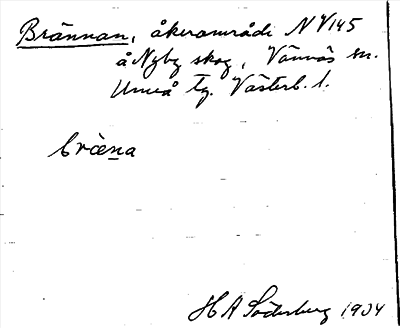 Brännan, åkerområde NV 145
å Nyby skog, Vännäs sn.
Umeå tg. Västerb. l.
bræ̀na
H A Söderberg 1934